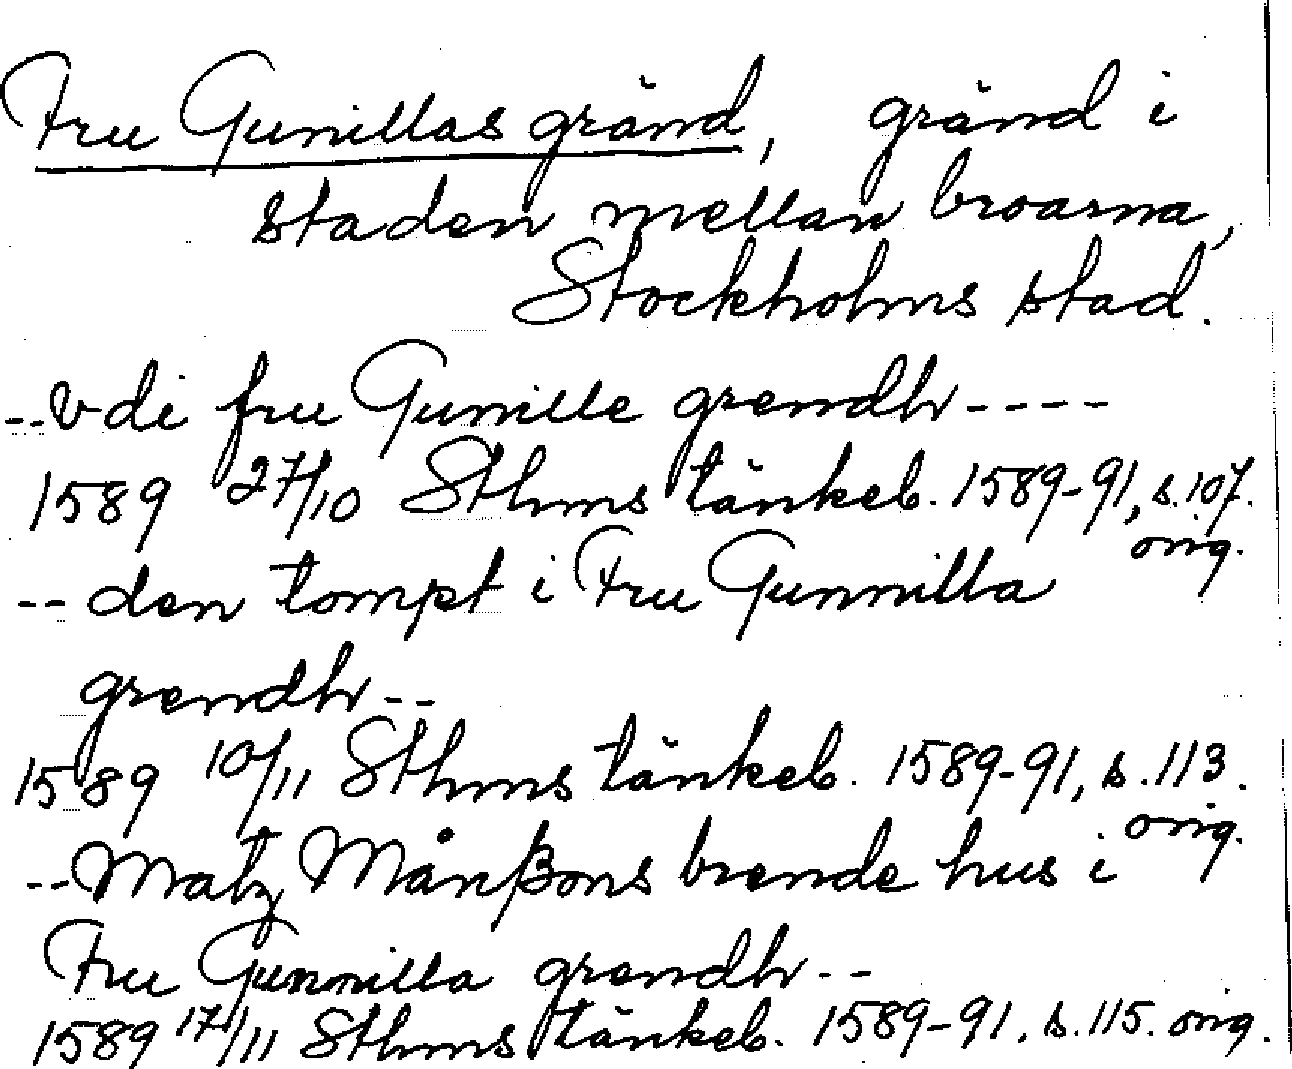 Fru Gunillas gränd, gränd i
staden mellan broarna,
Stockholms stad.
--vdi fru Gunille grendh----
1589 27/10 Sthms tänkeb. 1589-91, s. 107.
orig.
--den tompt i Fru Gunnilla
grendh--
1589 10/11 Sthms tänkeb. 1589-91, s. 113.
orig.
--Matz Månßons brende hus i
Fru Gunnilla grendh--
1589 17/11 Sthms tänkeb. 1589-91, s. 115. orig.